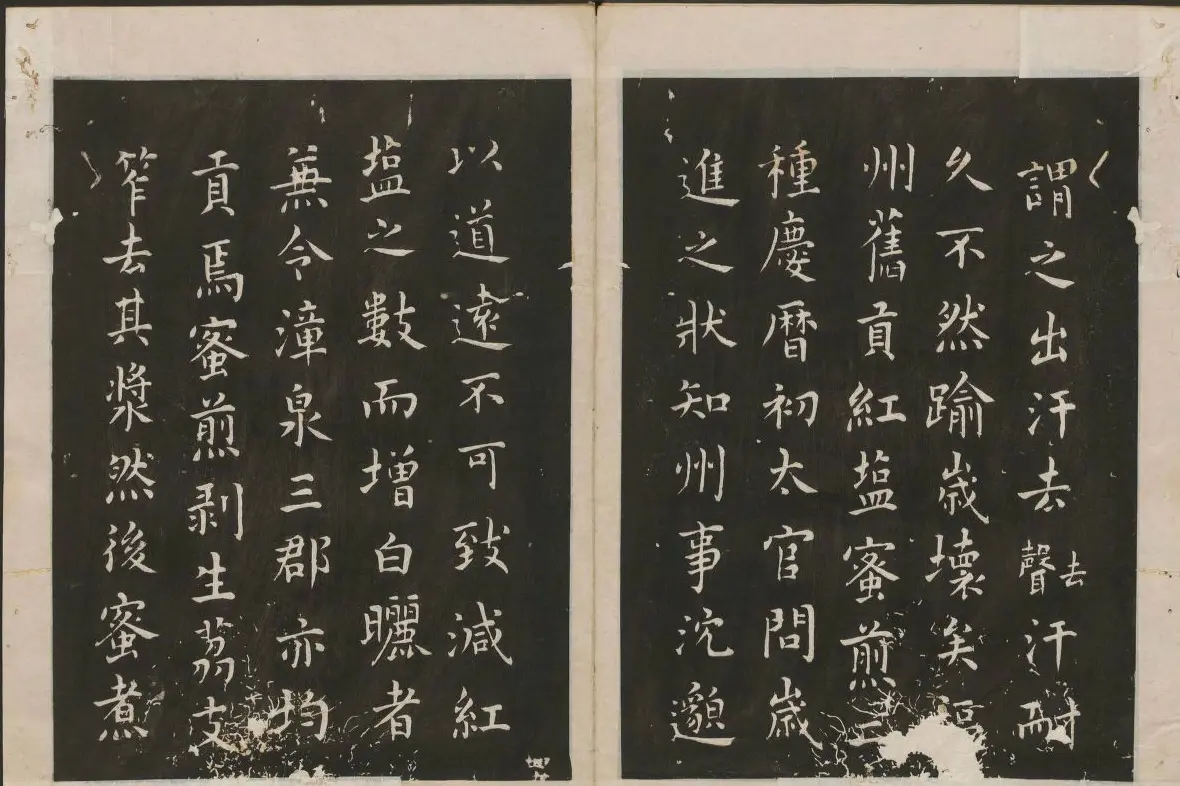 謂之出汗去去聲汗耐
久不然踰歲壞矣福
州舊貢紅塩蜜煎二
種慶暦初太官問歲
進之狀知州事沈邈
以道遠不可致減紅
塩之數而增白曬者
兼令漳泉三郡亦均
貢焉蜜煎剥生荔支
笮去其漿然後蜜煮